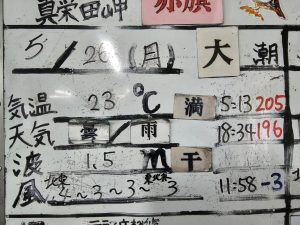 真栄田岬 赤旗
5/26(月) 大潮
気温 23℃ 満 5:13 205
天気 雲/雨 18:34 196
波 1.5m 干
風 3~3~3 11:58 -3